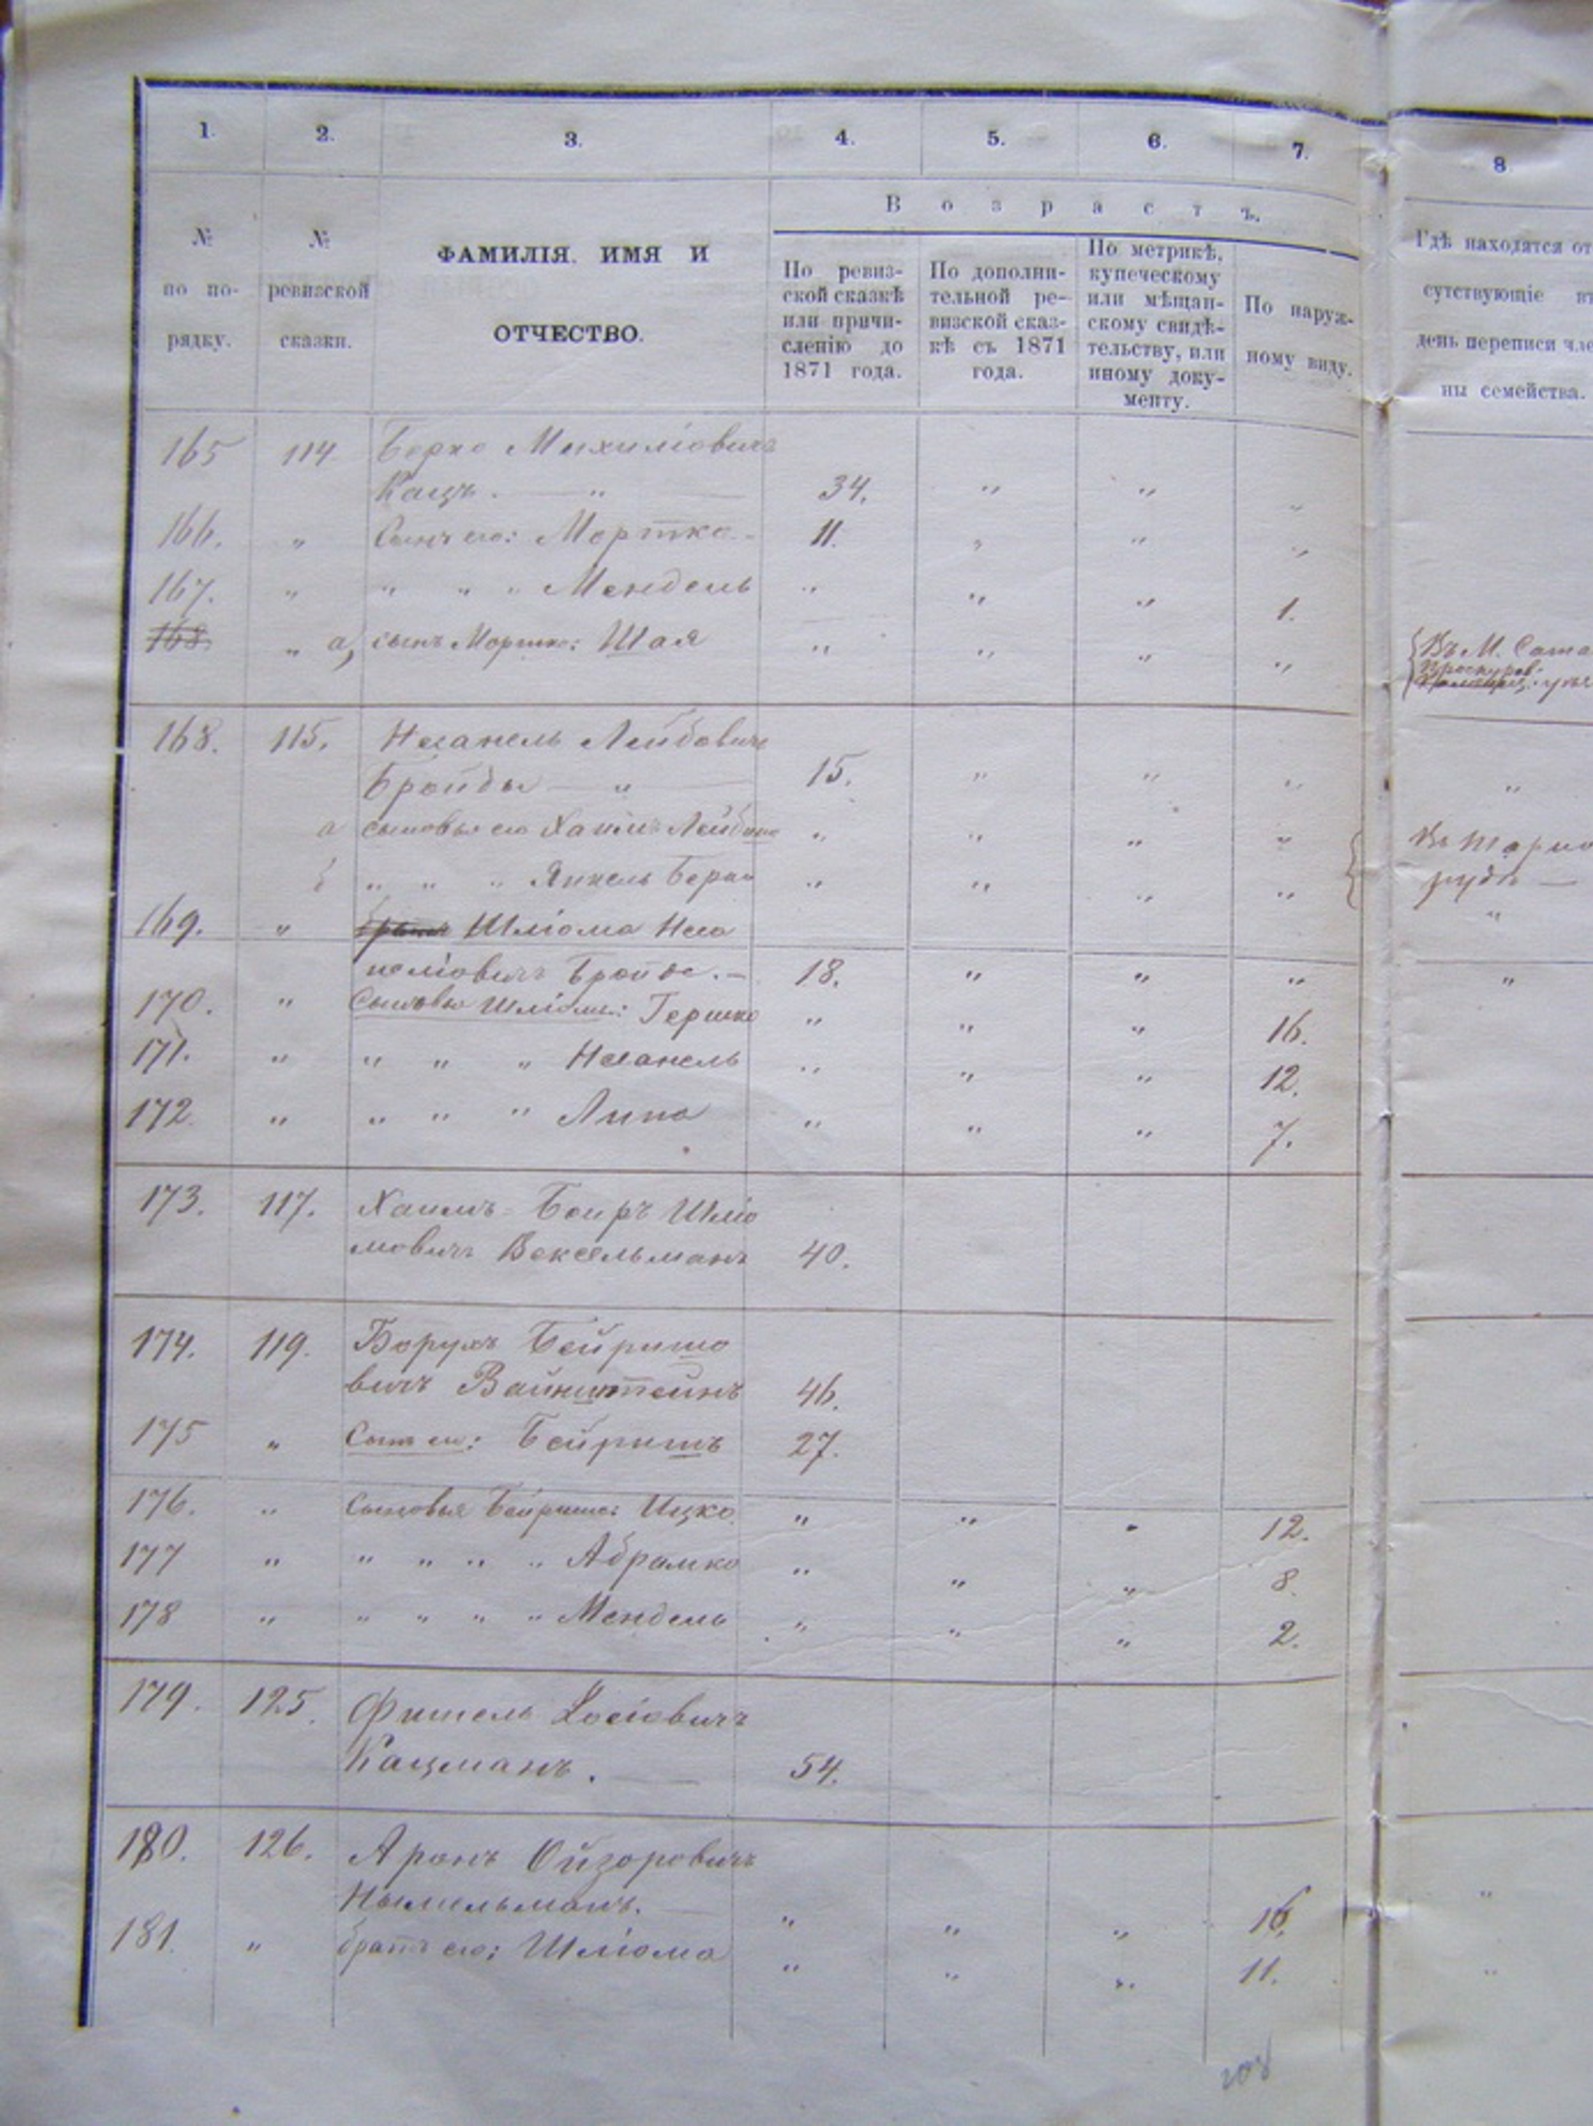 1. 2. 3. 4. 5. 6. 7. 8.
В о з р а с т ъ.
№ по по-рядку.
№ ревизской сказки.
ФАМИЛІЯ. ИМЯ И
ОТЧЕСТВО.
По ревиз-
ской сказкѣ
или причи-
сленію до
1871 года.
По дополни-
тельной ре-
визской сказ-
кѣ съ 1871
года.
По метрикѣ,
купеческому
или мѣщан-
скому свидѣ-
тельству, или
иному доку-
менту.
По наруж-
ному виду.
Гдѣ находятся от
сутствующіе въ
день переписи чле
ны семейства.
165 114 Берко Михиліовичъ
Кацъ. — „ — 34. „ „ „
166. „ Сынъ его: Мортко 11. „ „ „
167. „ „ „ „ Мендель „ „ „ 1.
168. „ а, сынъ Мортко: Шая „ „ „ „ Въ М. Сата
Проскуров.
168. 115. Несанель Лейбовичъ
Бройды — „ — 15. „ „ „ „
а сыновья его Хаимъ Лейбишъ „ „ „ „
б „ „ „ Янкель Берко „ „ „ „
169. „ Шліома Неса
неліовичъ Бройде. — 18. „ „ „ „
170. „ Сыновья Шліомы: Гершко „ „ „ 16.
171. „ „ „ „ Несанель „ „ „ 12.
172 „ „ „ „ Липа „ „ „ 7.
173. 117. Хаимъ-Боиръ Шліо
мовичъ Вексельманъ 40.
174. 119. Борухъ Бейришо
вичъ Вайнштейнъ 46.
175 „ Сынъ его: Бейришъ 27.
176. „ Сыновья Бейриша: Ицко „ „ „ 12.
177 „ „ „ „ „ Абрамко „ „ „ 8.
178 „ „ „ „ „ Мендель „ „ „ 2.
179. 125. Фишель Іосіовичъ
Кацманъ. — 54.
180. 126. Аронъ Ойзоровичъ
„ „ „ 16. „
181. „ братъ его: Шліома „ „ „ 11. „
208